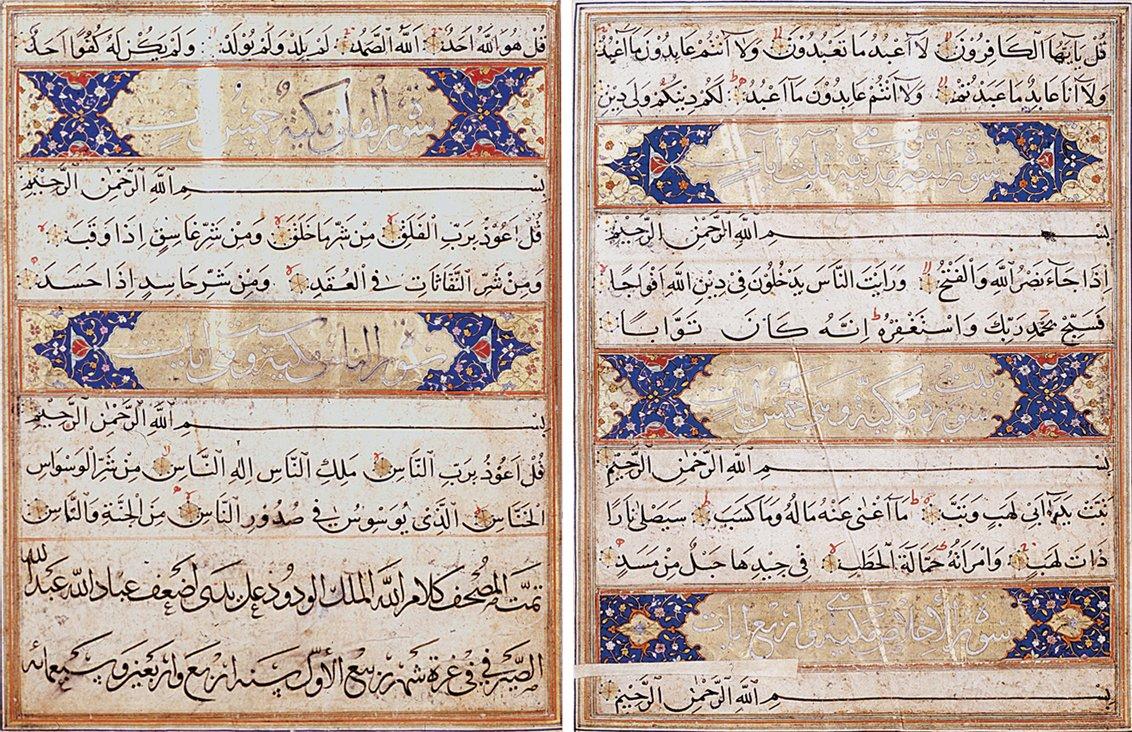 قُل يا أيها الكافرون لا أعبد ما تعبدون ولا أنتم عابدون ما أعبد
ولا أنا عابد ما عبدتم ولا أنتم عابدون ما أعبد لكم دينكم ولي دين
سورة النصر مدنية وهي ثلث آيات
بسم الله الرحمن الرحيم
إذا جاء نصر الله والفتح ورأيت الناس يدخلون في دين الله أفواجا
فسبح بحمد ربك واستغفره إنه كان توابا
سورة تبت مكية وهي خمس آيات
بسم الله الرحمن الرحيم
تبت يدا أبي لهب وتب ما أغنى عنه ماله وما كسب سيصلى نارا
ذات لهب وامرأته حمالة الحطب في جيدها حبل من مسد
سورة الإخلاص مكية وهي أربع آيات
بسم الله الرحمن الرحيم
قل هو الله أحد الله الصمد لم يلد ولم يولد ولم يكن له كفوا أحد
سورة الفلق مكية خمس آيات
بسم الله الرحمن الرحيم
قل أعوذ برب الفلق من شر ما خلق ومن شر غاسق إذا وقب
ومن شر النفاثات في العقد ومن شر حاسد إذا حسد
سورة الناس مكية وهي ست آيات
بسم الله الرحمن الرحيم
قل أعوذ برب الناس ملك الناس إله الناس من شر الوسواس
الخناس الذي يوسوس في صدور الناس من الجنة والناس
تمت المصحف كلام الله الملك الودود على يدي أضعف عباد الله عبد الله
الصيرفي في غرة شهر ربيع الأول سنة أربع وأربعين وسبعمائه